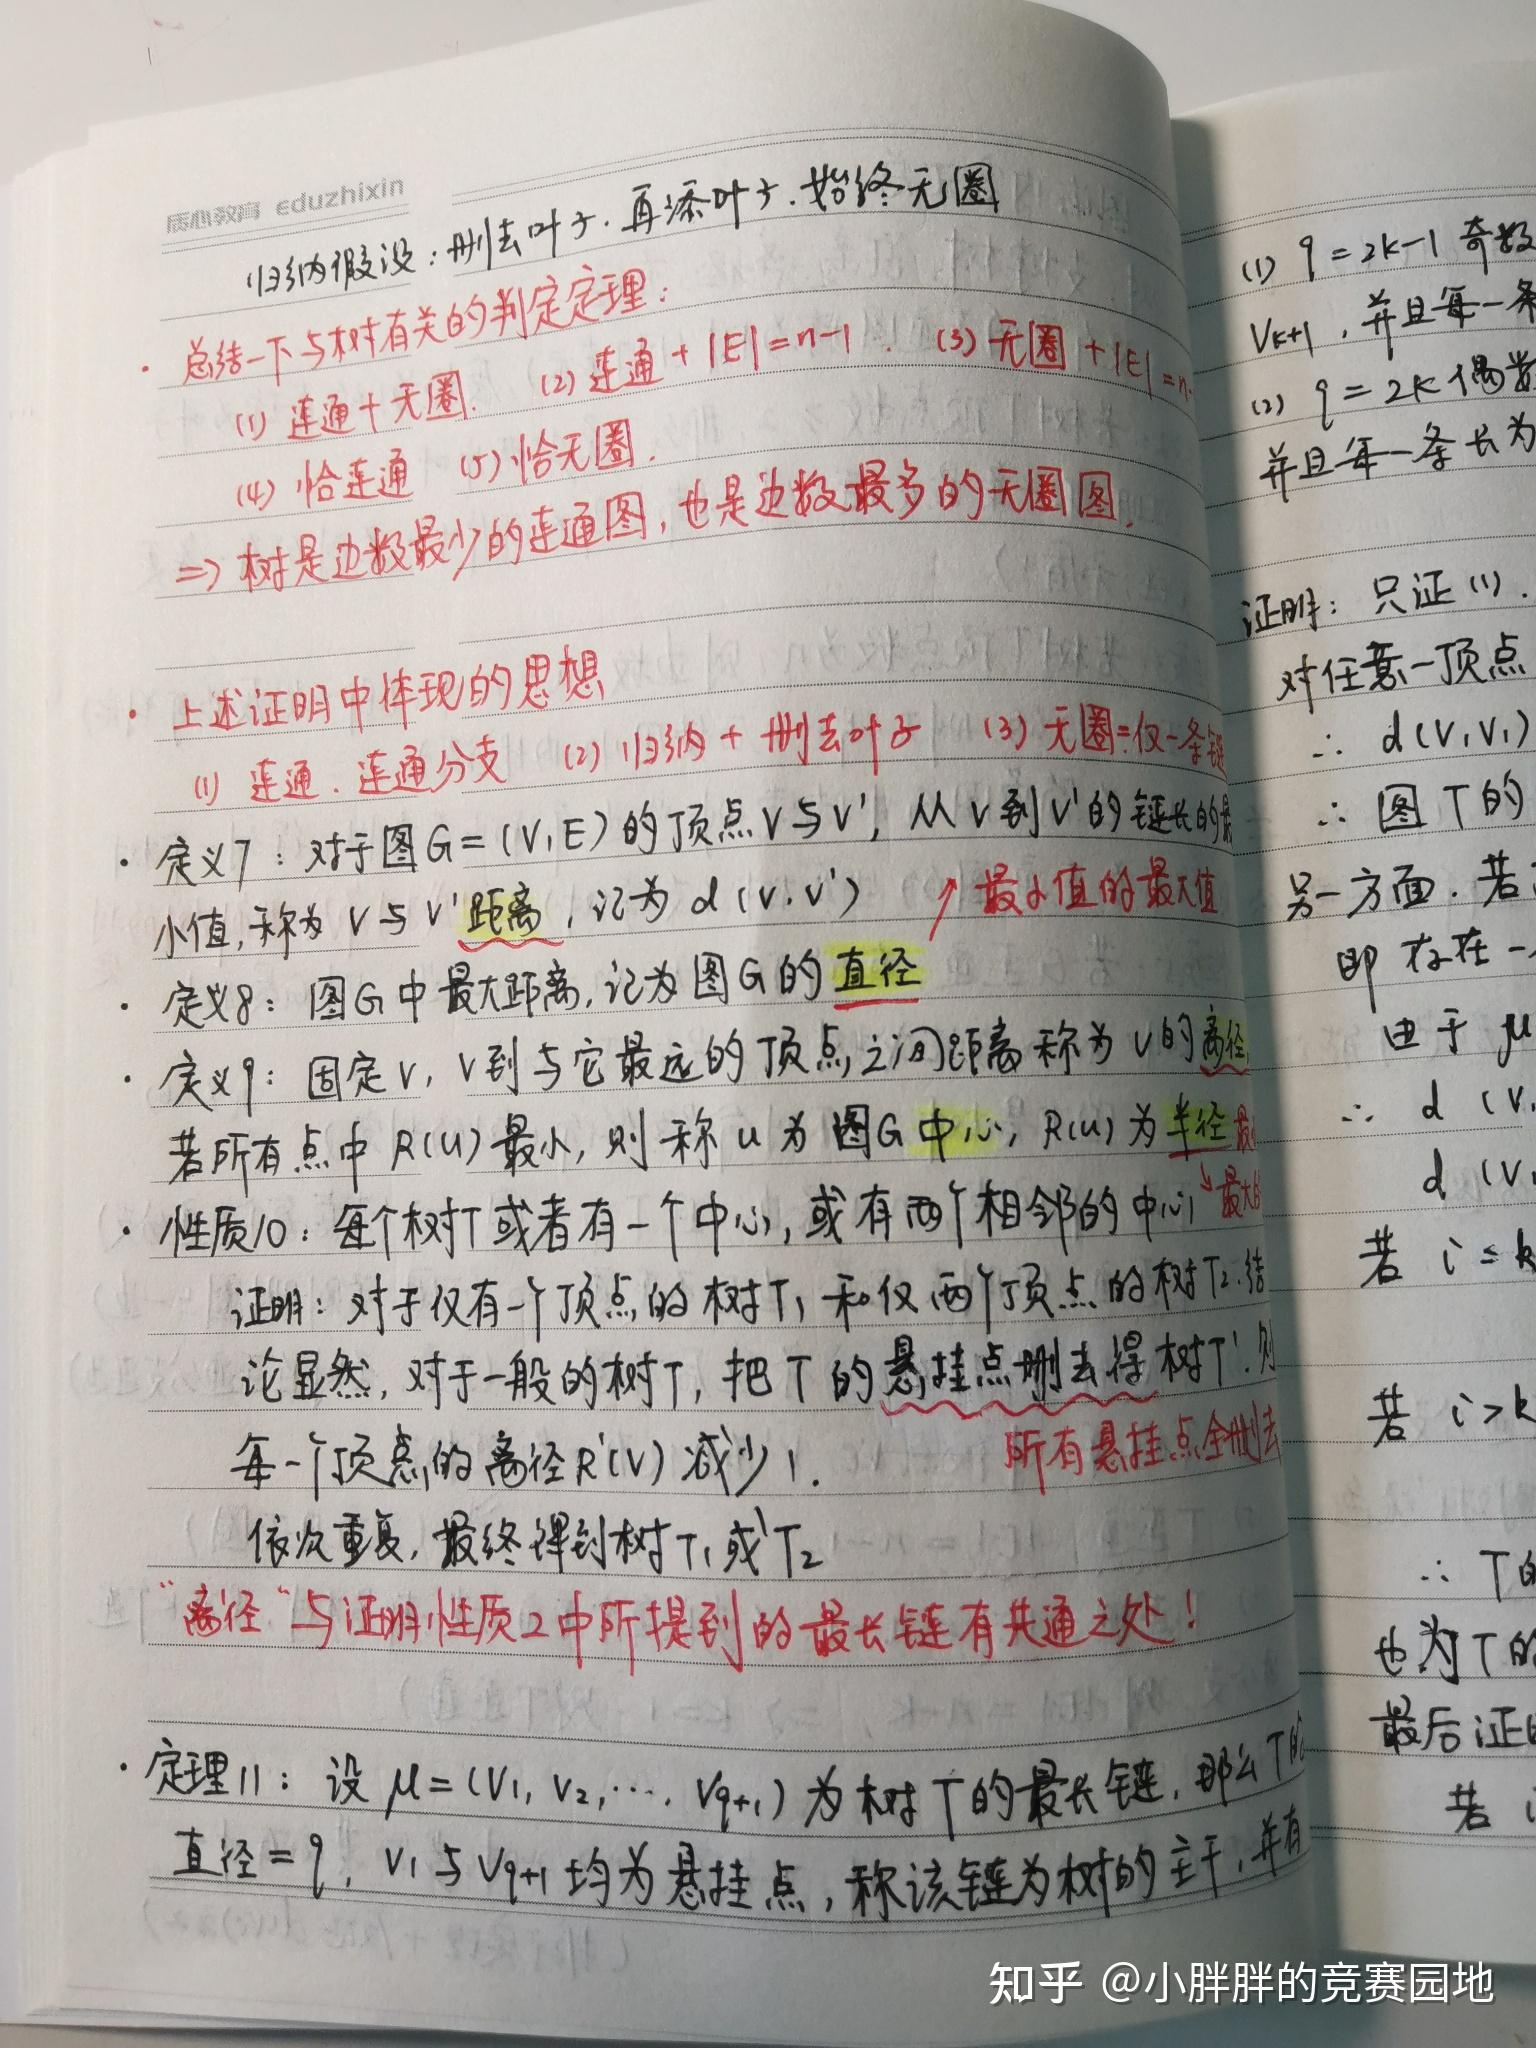 质心教育 eduzhixin
归纳假设：删去叶子.再添叶子.始终无圈
· 总结一下与树有关的判定定理：
(1) 连通+无圈. (2) 连通+|E|=n-1. (3) 无圈+|E|=n-
(4) 恰连通 (5) 恰无圈.
=> 树是边数最少的连通图，也是边数最多的无圈图.
· 上述证明中体现的思想
(1) 连通.连通分支 (2) 归纳+删去叶子 (3) 无圈=仅一条链
· 定义7：对于图G=(V,E)的顶点V与V'，从V到V'的链长的最
小值,称为V与V'距离，记为d(V,V')
最小值的最大值
· 定义8：图G中最大距离,记为图G的直径
· 定义9：固定V,V到与它最远的顶点之间距离称为V的离径,
若所有点中R(u)最小,则称u为图G中心,R(u)为半径
最大的
· 性质10：每个树T或者有一个中心,或有两个相邻的中心
证明：对于仅有一个顶点的树T1和仅两个顶点的树T2.结
论显然,对于一般的树T,把T的悬挂点删去得树T'.则
每一个顶点的离径R'(V)减少1.
所有悬挂点全删去
依次重复,最终得到树T1或T2
“离径”与证明性质2中所提到的最长链有共通之处！
· 定理11：设μ=(V1,V2,…,Vq+1)为树T的最长链,那么T的
直径=q,V1与Vq+1均为悬挂点,称该链为树的主干,并有
(1) q=2k-1奇数
Vk+1,并且每一条
(2) q=2k偶数
并且每一条长为
证明：只证(1).
对任意一顶点
∴ d(V,V1)
∴ 图T的
另一方面.若
即存在一
由于μ
∴ d(V,
d(V,
若i=k
若i>k
∴ T的
也为T的
最后证明
若i
知乎 @小胖胖的竞赛园地